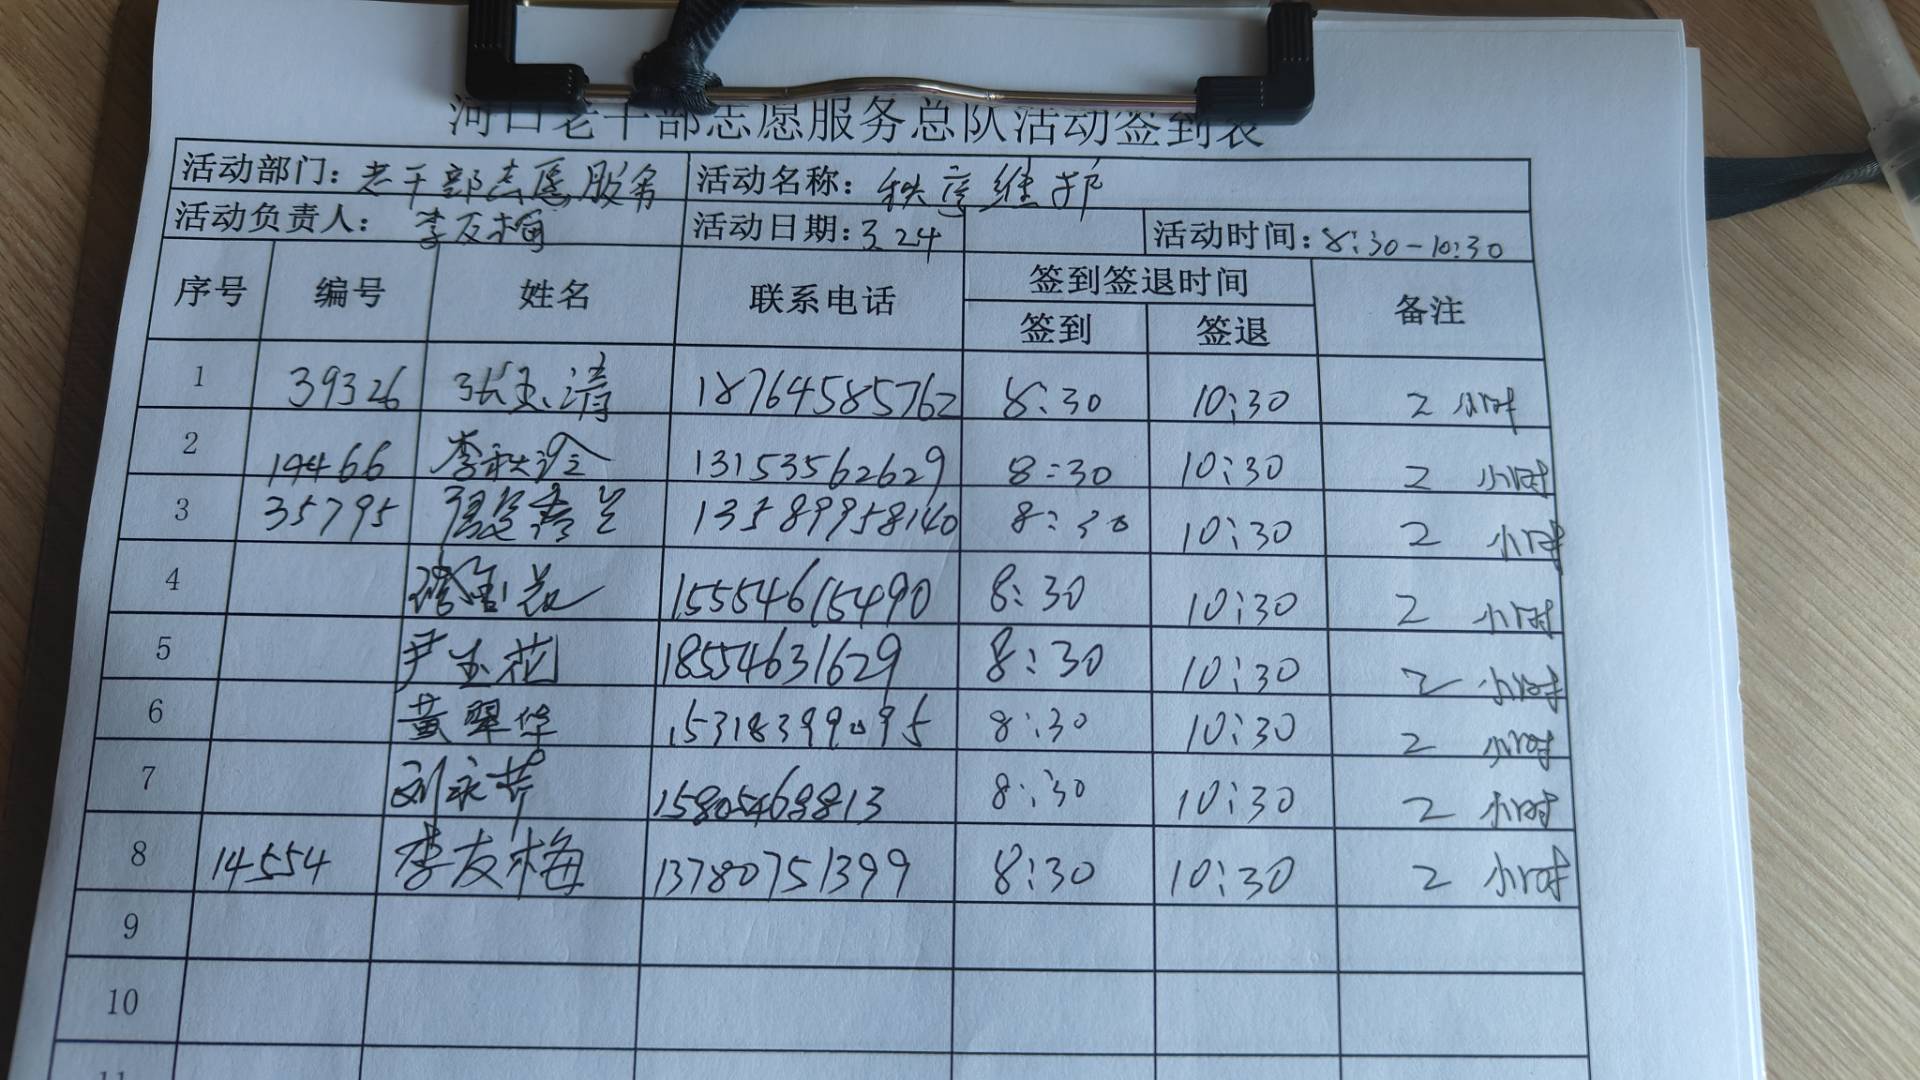 河口老干部志愿服务总队活动签到表
活动部门：老干部志愿服务 活动名称：秩序维护
活动负责人：李友梅 活动日期：3.24 活动时间：8:30-10:30
序号 编号 姓名 联系电话 签到签退时间 备注
签到 签退
1 39326 张玉清 18764585762 8:30 10:30 2 小时
2 19466 李秋 13153562629 8:30 10:30 2 小时
3 35795 13589958140 8:30 10:30 2 小时
4 15554615490 8:30 10:30 2 小时
5 尹玉花 18554631629 8:30 10:30 2 小时
6 黄翠华 15318399095 8:30 10:30 2 小时
7 刘永芹 15805468813 8:30 10:30 2 小时
8 14554 李友梅 13780751399 8:30 10:30 2 小时
9
10
11